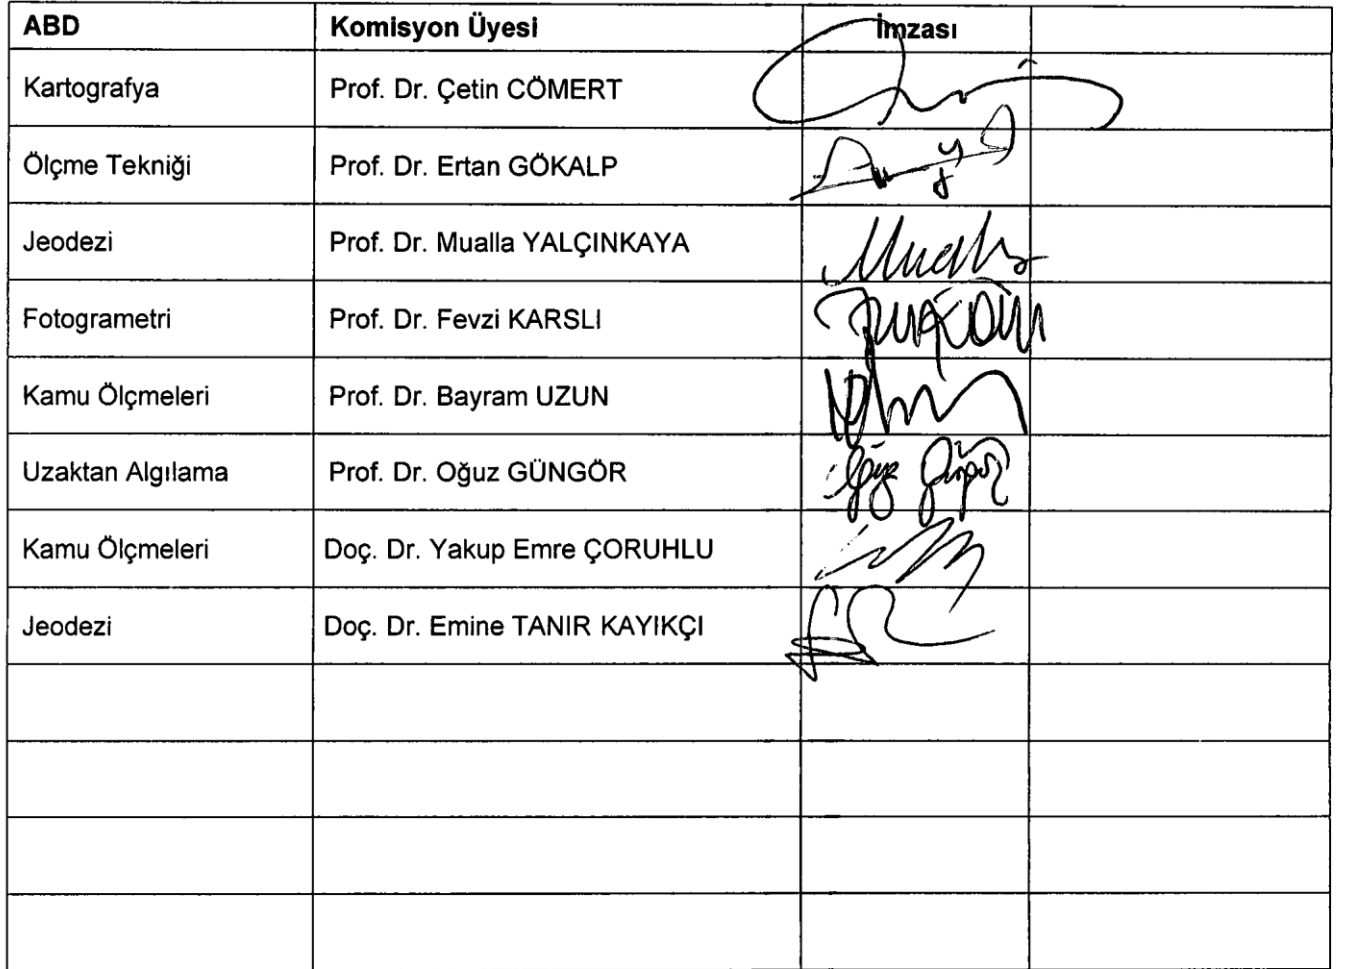 ABD Komisyon Üyesi İmzası
Kartografya Prof. Dr. Çetin CÖMERT
Ölçme Tekniği Prof. Dr. Ertan GÖKALP
Jeodezi Prof. Dr. Mualla YALÇINKAYA
Fotogrametri Prof. Dr. Fevzi KARSLI
Kamu Ölçmeleri Prof. Dr. Bayram UZUN
Uzaktan Algılama Prof. Dr. Oğuz GÜNGÖR
Kamu Ölçmeleri Doç. Dr. Yakup Emre ÇORUHLU
Jeodezi Doç. Dr. Emine TANIR KAYIKÇI